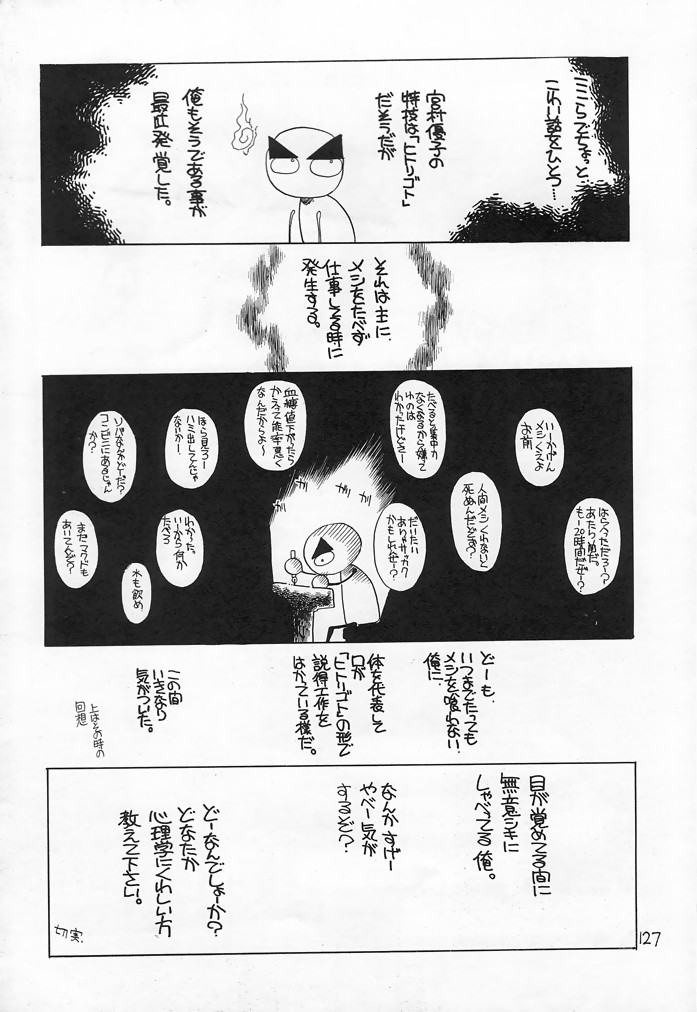 ここらでちょっと…
こわい話をひとつ…
宮村優子の
特技は、「ヒトリゴト」
だそうだが
俺もそうである事が
最近発覚した。
それは主に、
メシをたべず
仕事してる時に
発生する。
いーかげん
メシくえよ
お前
はらへっただろー?
あたりめだ。
もー20時間だぜー?
人間メシくわないと
死ぬんだどぉ〜?
たべると集中力
なくなるから嫌て
ゆのは
わかったけどさー
だいたい
ありゃサッカク
かもしれねー?
血糖値下がったら
かえって能率悪く
なんだからよ〜
ほら見ろー
ハミ出してんじゃ
ないかー、
わかった。
いーから何か
たべろ
ソバなんかどーだ?
コンビニにあるじゃん
か?
水も飲め
まだマクドも
あいてんぞ?
ガリ
ガリ
ガリ
どーも、
いつまでたっても
メシを喰わない
俺に、
体を代表して
口が
「ヒトリゴト」の形で
説得工作を
はかっている様だ。
この間
いきなり
気がついた。
上はその時の
回想
目が覚めてる間に
無意シキに
しゃべってる俺。
なんかすげー
やべー気が
するぞ?
どーなんでしょーか?
どなたか
心理学にくわしい方
教えて下さい。
切実.
127